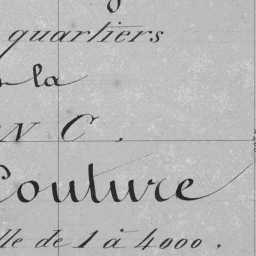 quartiers
la
N C.
Couture
lle de 1 à 4000.